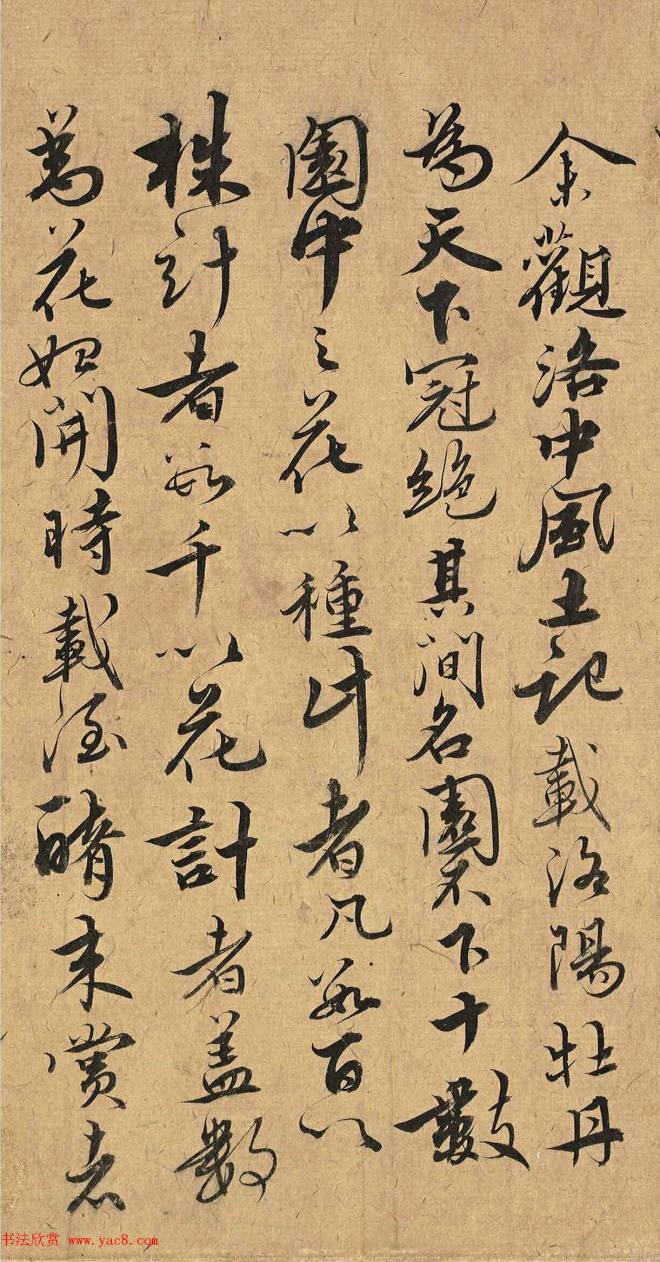 余觀洛中風土記載洛陽牡丹
為天下冠絕其間名園不下十數
園中之花以種計者凡數百以
株計者數千以花計者盖數
萬花始開時載酒來賞者
书法欣赏 www.yac8.com